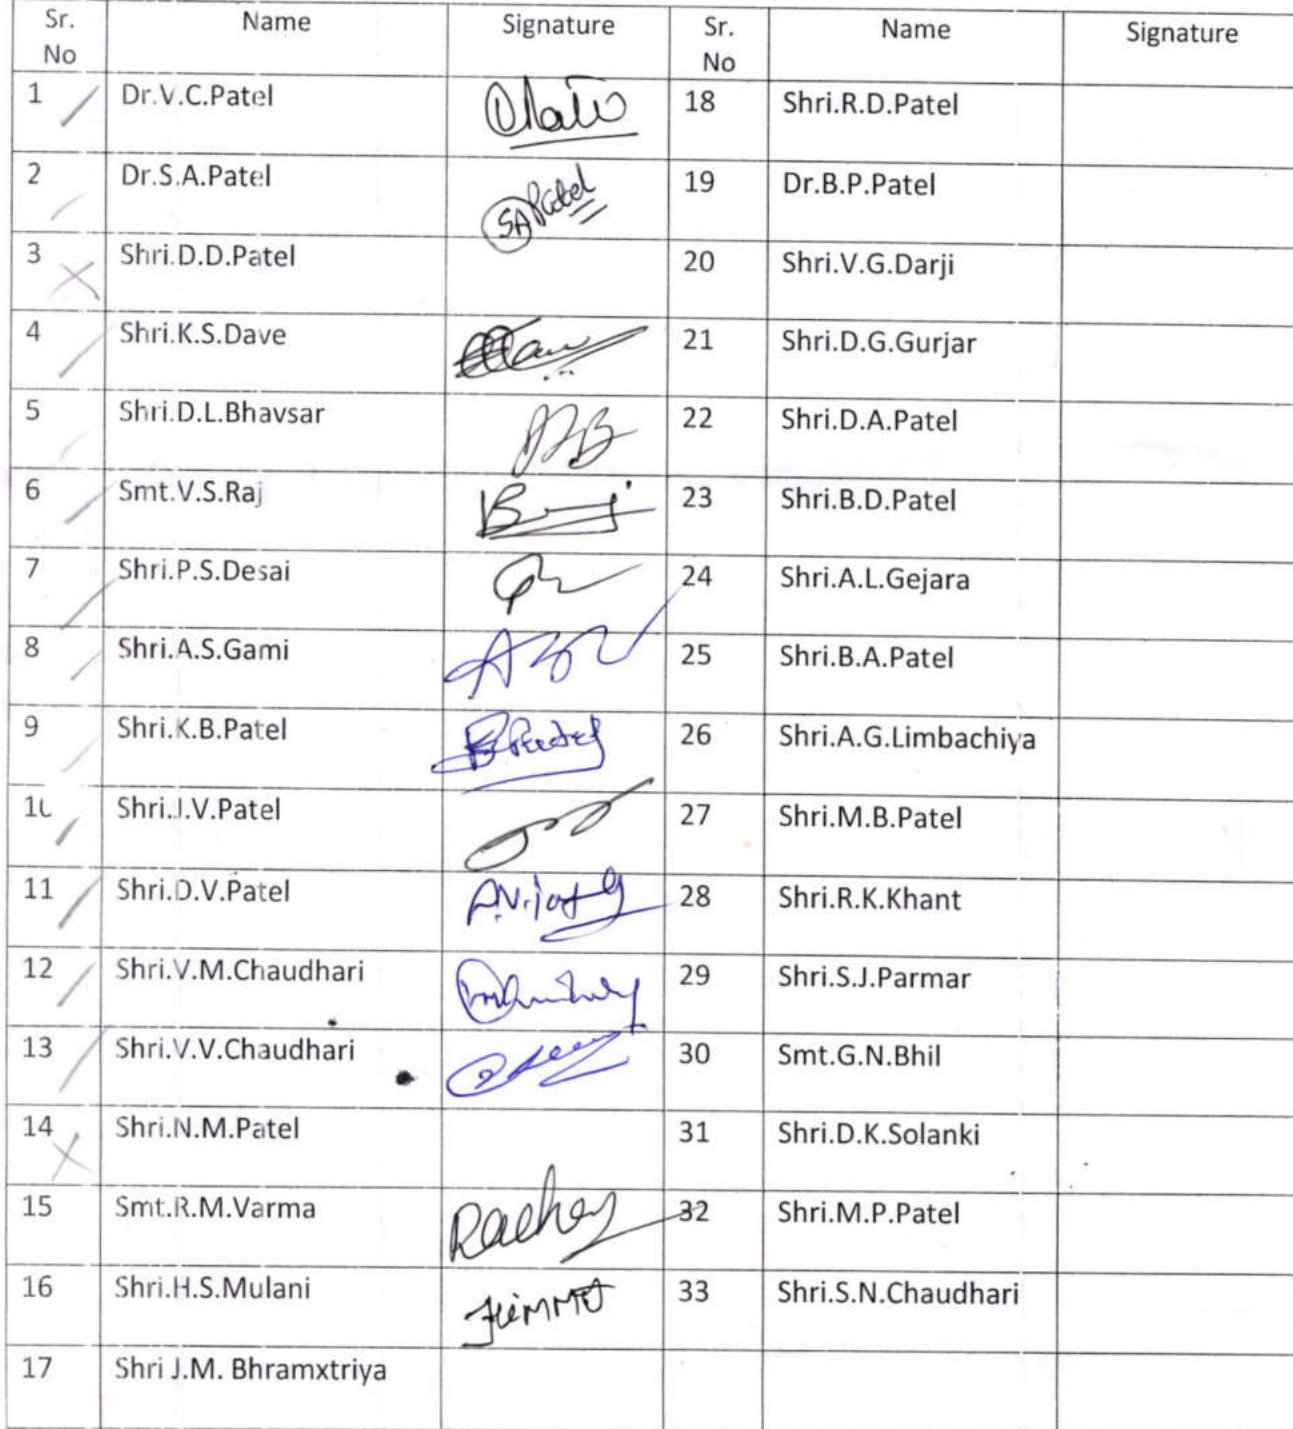 Sr. No Name Signature Sr. No Name Signature
1 Dr.V.C.Patel 18 Shri.R.D.Patel
2 Dr.S.A.Patel SAPatel 19 Dr.B.P.Patel
3 Shri.D.D.Patel 20 Shri.V.G.Darji
4 Shri.K.S.Dave 21 Shri.D.G.Gurjar
5 Shri.D.L.Bhavsar 22 Shri.D.A.Patel
6 Smt.V.S.Raj 23 Shri.B.D.Patel
7 Shri.P.S.Desai 24 Shri.A.L.Gejara
8 Shri.A.S.Gami 25 Shri.B.A.Patel
9 Shri.K.B.Patel 26 Shri.A.G.Limbachiya
10 Shri.J.V.Patel 27 Shri.M.B.Patel
11 Shri.D.V.Patel 28 Shri.R.K.Khant
12 Shri.V.M.Chaudhari 29 Shri.S.J.Parmar
13 Shri.V.V.Chaudhari 30 Smt.G.N.Bhil
14 Shri.N.M.Patel 31 Shri.D.K.Solanki
15 Smt.R.M.Varma 32 Shri.M.P.Patel
16 Shri.H.S.Mulani 33 Shri.S.N.Chaudhari
17 Shri J.M. Bhramxtriya